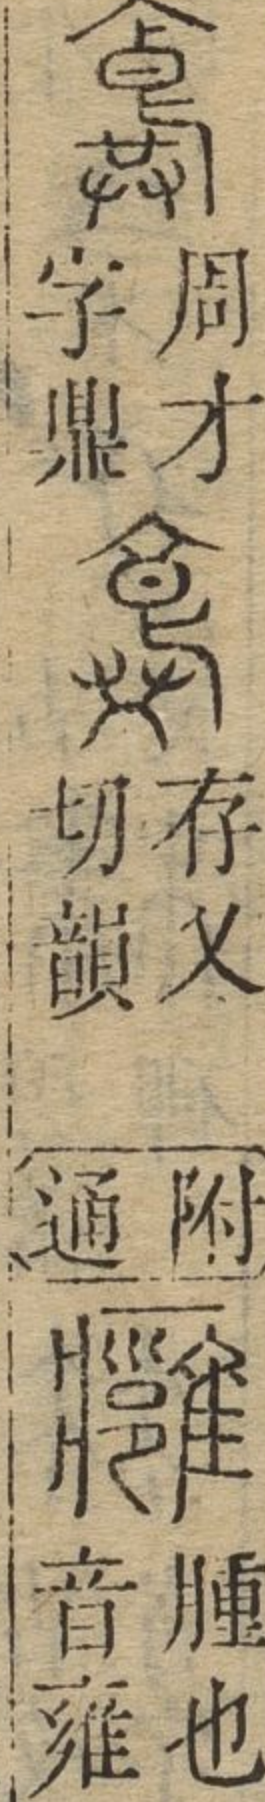 周才
字鼎
存乂
切韻
附
通
癰
腫也
音雍